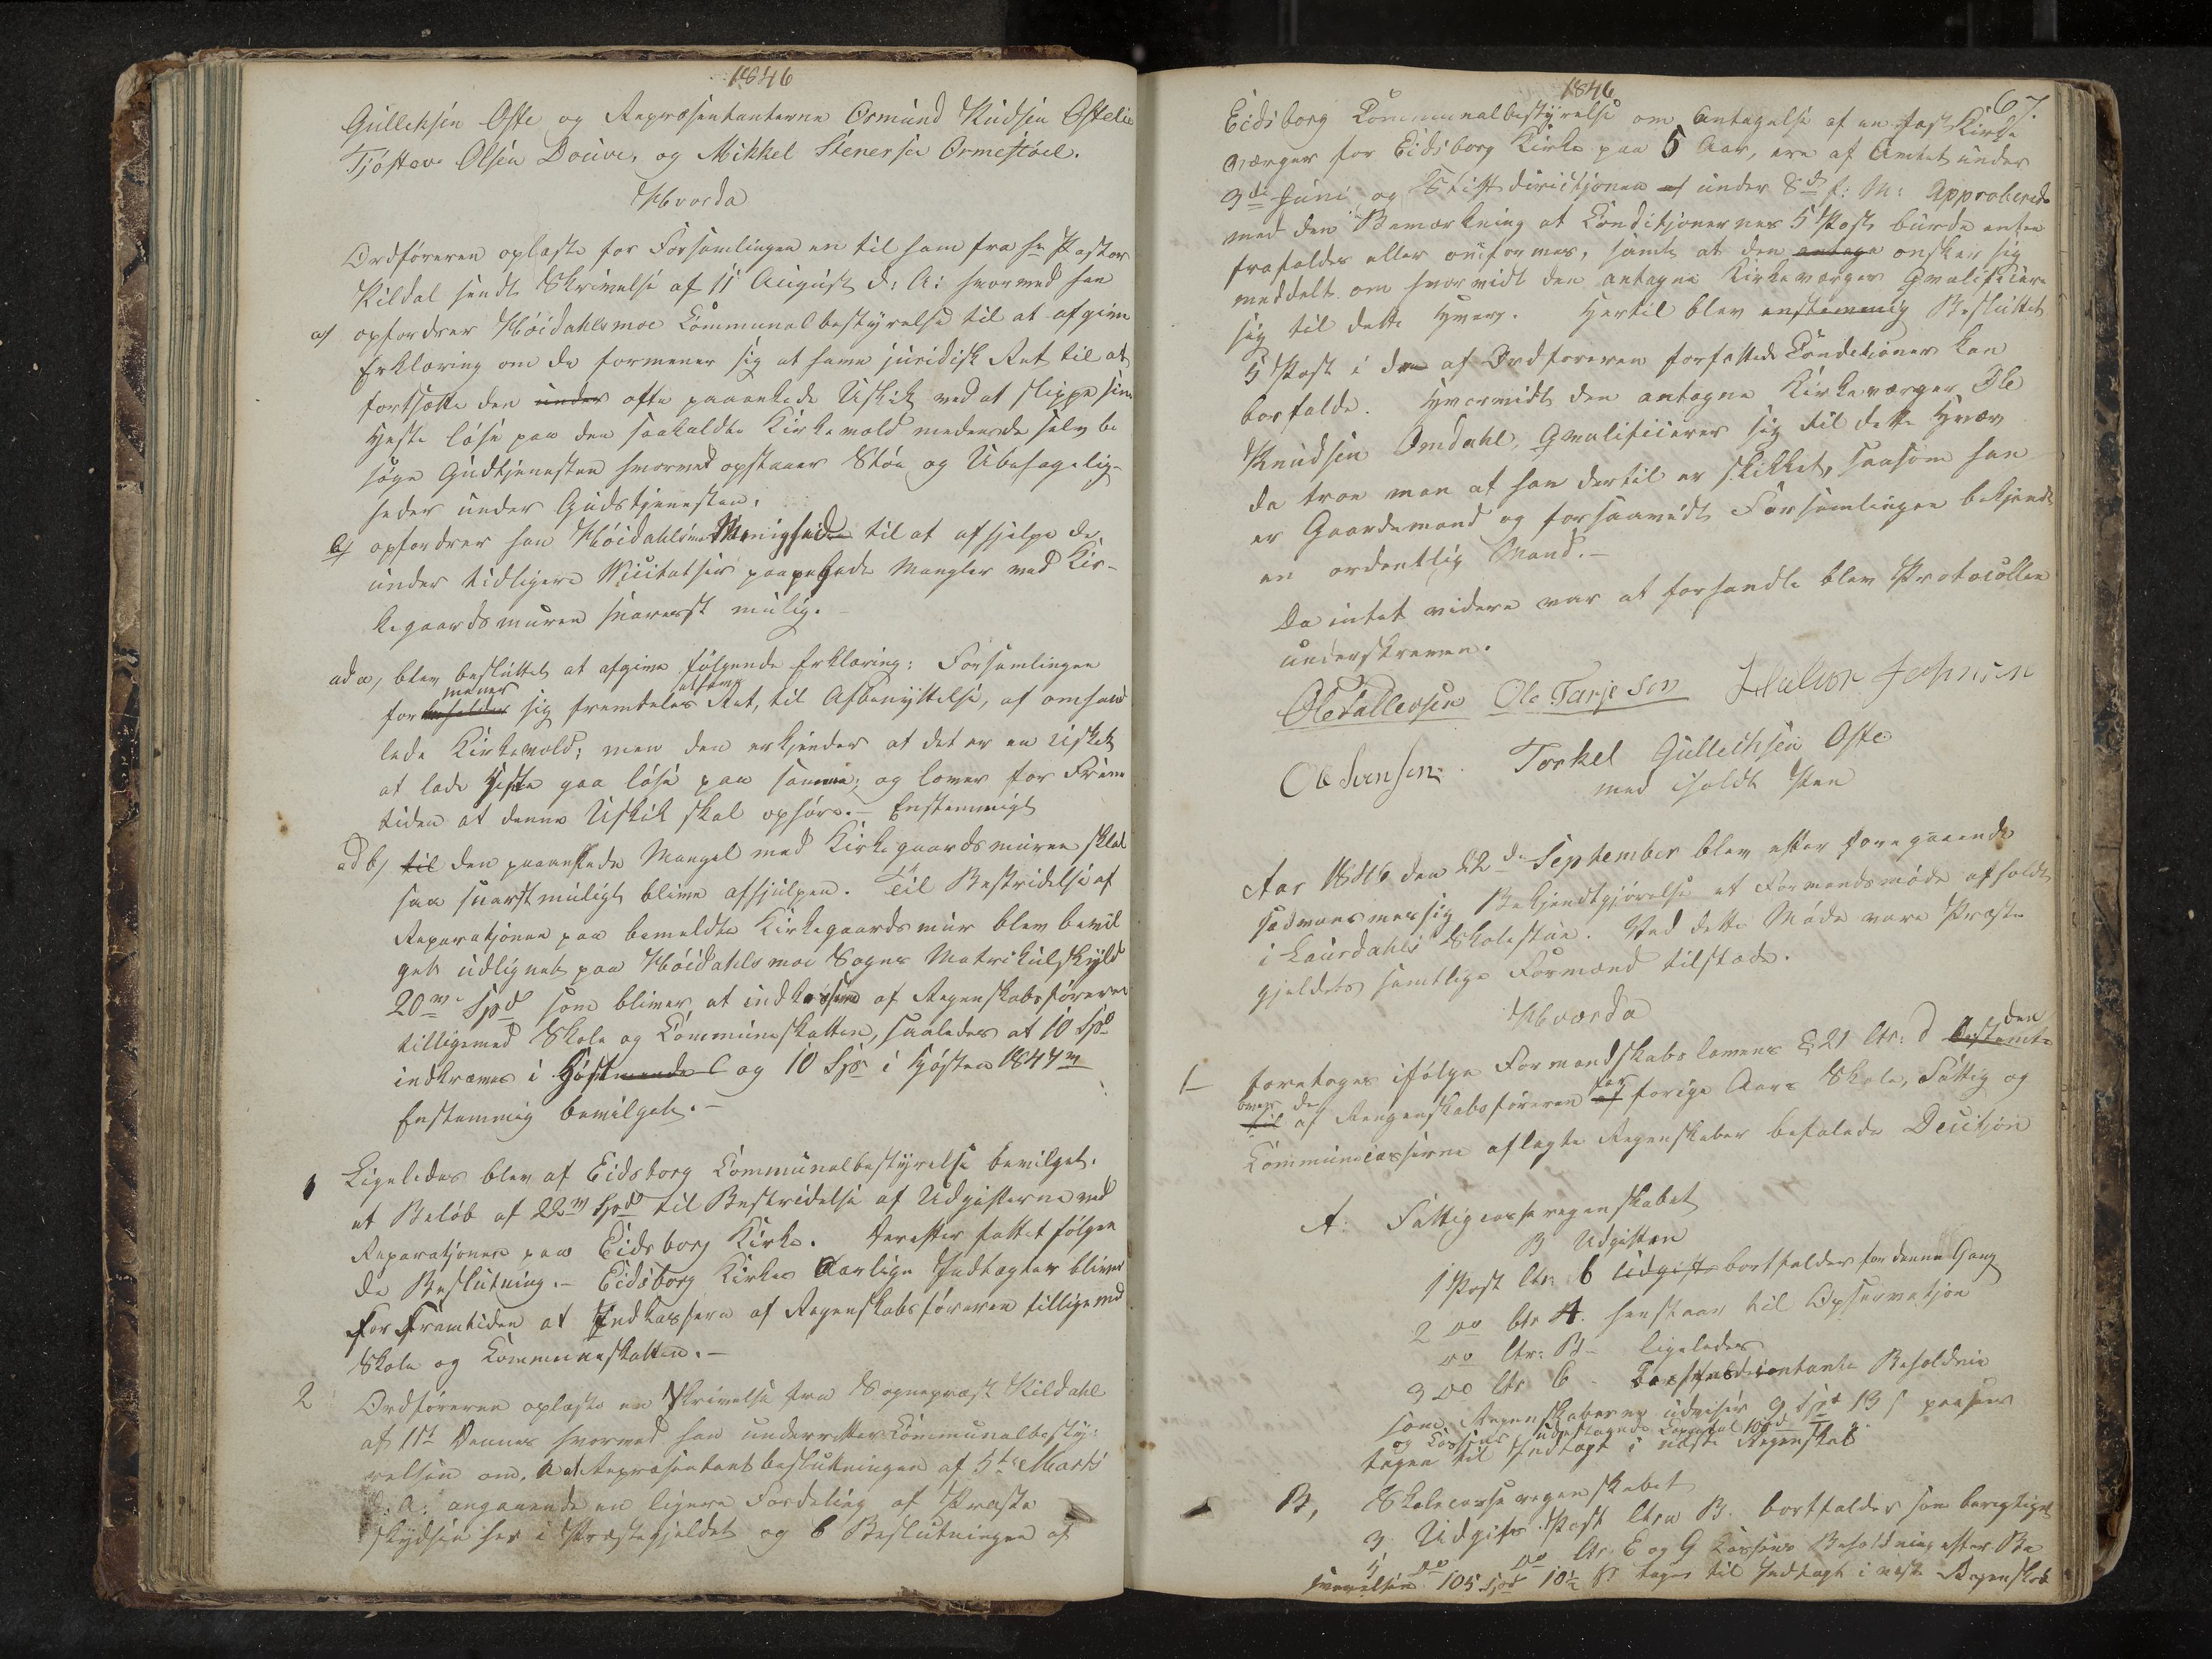 1846
Gulliksen Ofte og Repræsentanterne Osmund Knudsen Ofteli
Tjöstov Olsen Douve, og Mikkel Stenersen Ormestöel.
Hvorda
Ordföreren oplæste for Forsamlingen en til ham fra Hr Pastor
Kildal sendt Skrivelse af 11 August d: A: hvorved han
a) opfordrer Höidahlsmoe Communalbestyrelse til at afgive
Erklæring om de formener sig at have juridisk Ret til at
fortsætte den under ofte paaankede Uskik ved at slippe sine
Heste löse paa den saakaldte Kirkevold medens de selv be
söge Gudstjenesten hvorved opstaaer Stöi og Ubehagelig-
heder under Gudstjenesten.
b) opfordrer han Höidahlsmoe Menighed til at afhjelpe de
under tidligere Visitatser paapegede Mangler ved Kir-
kegaardsmuren snarest mulig.
ad a, blev besluttet at afgive fölgende Erklæring: Forsamlingen
formener sig fremdeles at have Ret, til Afbenyttelse, af omhand
lede Kirkevold; men den erkjender at det er en Uskik
at lade Heste gaa löse paa samme; og lover for Frem
tiden at denne Uskik skal ophöre. – Enstemmigt
ad b, til den paaankede Mangel med Kirkegaardsmuren skal
saa snart muligt blive afhjulpen. Til Bestridelse af
Reparatjonen paa bemeldte Kirkegaardsmur blev bevil
get udlignet paa Höidahlsmoe Sogns Matrikulskyld
20ve Spd som bliver at indkassere af Regnskabsföreren
tilligemed Skole og Communeskatten, saaledes at 10 Spd
indkræves i Höst og 10 Spd i Hösten 1847
Enstemmig bevilget. –
1 Ligeledes blev af Eidsborg Communalbestyrelse bevilget
et Belöb af 22 Spd til Bestridelse af Udgifterne ved
Reparatjonen paa Eidsborg Kirke. Derefter fattet fölgen
de Beslutning. – Eidsborg Kirkes Aarlige Indtægter bliver
for Fremtiden at Indkassere af Regnskabsföreren tilligemed
Skole og Communeskatten. –
2 Ordföreren oplæste en Skrivelse fra Sognepræst Kildahl
af 11te Dennes hvorved han underretter Communalbesty-
relsen om, a at Repræsentantbeslutningen af 5te Marts
d: A: angaaende en ligere Fordeling af Præste
skydsen her i Præstegjeldet og b Beslutningen af
1846 67.
Eidsborg Communalbestyrelse om Antagelse af en fast Kirke
værger for Eidsborg Kirke paa 5 Aar, ere af Amtet under
3de Juni og Stiftsdirectjonen af under 8de f: M: Approberede
med den Bemærkning at Conditjonernes 5 Post burde enten
frafaldes eller omformes, samt at den antage onsker sig
meddelt om hvorvidt den antagne Kirkeværger Qvalificere
sig til dette Hverv. Hertil blev enstemmig Besluttet
5 Post i de af Ordföreren forfattede Conditioner kan
bortfalde. Hvorvidt den antagne Kirkeværger Ole
Knudsen Omdahl, Qvalificerer sig til dette Hverv
da troe man at han dertil er skikket, saasom han
er Gaardemand og forsaavidt Forsamlingen bekjendt
en ordentlig Mand. –
Da intet videre var at forhandle blev Protocollen
underskreven.
Ole Tallevsen Ole Tarjesen Halvor Johnsen
Ole Svensen Torkel Gullichsen Ofte
med iholdt Pen
Aar 1846 den 22de September blev efter foregaaende
Sædvansmessig Bekjendtgjörelse et Formandsmöde afholdt
i Laurdahls Skolestue. Ved dette Möde vare Præste
gjeldets samtlige Formænd tilstæde.
Hvorda
1 foretoges ifölge Formandskabslovens § 21 ltr: d bestemte den
over til de af Regnskabsföreren for af forige Aars Skole, Fattig og
Communecasserne aflagte Regnskaber befalede Decitjon
A: Fattigcasseregnskabet
B Udgiften
1 Post ltr: b Udgift bortfalder for denne Gang
2 do ltr A. henstaar til Opservatjon
do ltr: B – ligeledes
3 do ltr C – contante Beholdnin
som Regnskaberne udviser 9 Spd 13 s
og Cassens udestaaende Capital
tages til Indtægt i næste Regnskab
B, Skolecasseregnskabet
3. Udgifts Post ltra B. bortfalder som berigtiget
5 do do ltr. E og G Cassens Beholdning efter Be
105 Spd 10½ s tages til Indtægt i neste Regnskab